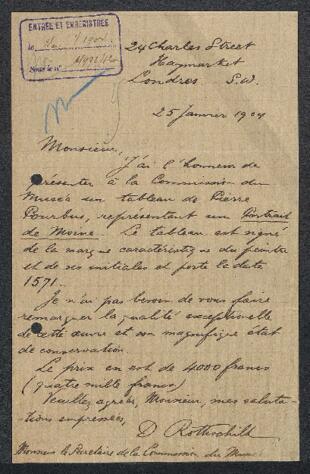 ENTRÉE ET ENREGISTRÉE
le
Sous le n°
24 Charles Street
Haymarket
Londres S.W.
25 Janvier 1904
Monsieur,
J'ai l'honneur de
présenter à la Commission du
Musée un tableau de Pierre
Pourbus, représentant un Portrait
de Moine. Le tableau est signé
de la marque caractéristique du peintre
et de ses initiales et porte la date
1571.
Je n'ai pas besoin de vous faire
remarquer la qualité exceptionnelle
de cette œuvre et son magnifique état
de conservation.
Le prix en est de 4000 francs
(quatre mille francs)
Veuillez agréer, Monsieur, mes saluta-
tions empressées,
D Rothschild
Monsieur le Secrétaire de la Commission du Musée